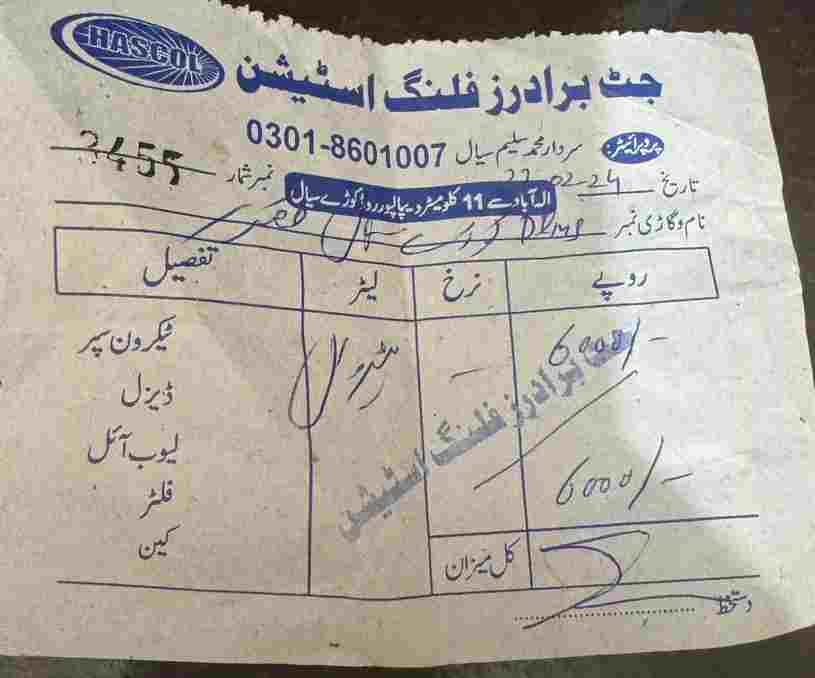 HASCOL
جٹ برادرز فلنگ اسٹیشن
پروپرائیٹر: سردار محمد سلیم سیال 0301-8601007
نمبر شمار 3455
الہ آباد سے 11 کلومیٹر دیپالپور روڈ کوڑے سیال
تاریخ 22-02-24
نام و گاڑی نمبر
تفصیل لیٹر نرخ روپے
ٹیکرون سپر پٹرول - 6000/-
ڈیزل
لیوب آئل
فلٹر
کین
جٹ برادرز فلنگ اسٹیشن
6000/-
کل میزان
دستخط